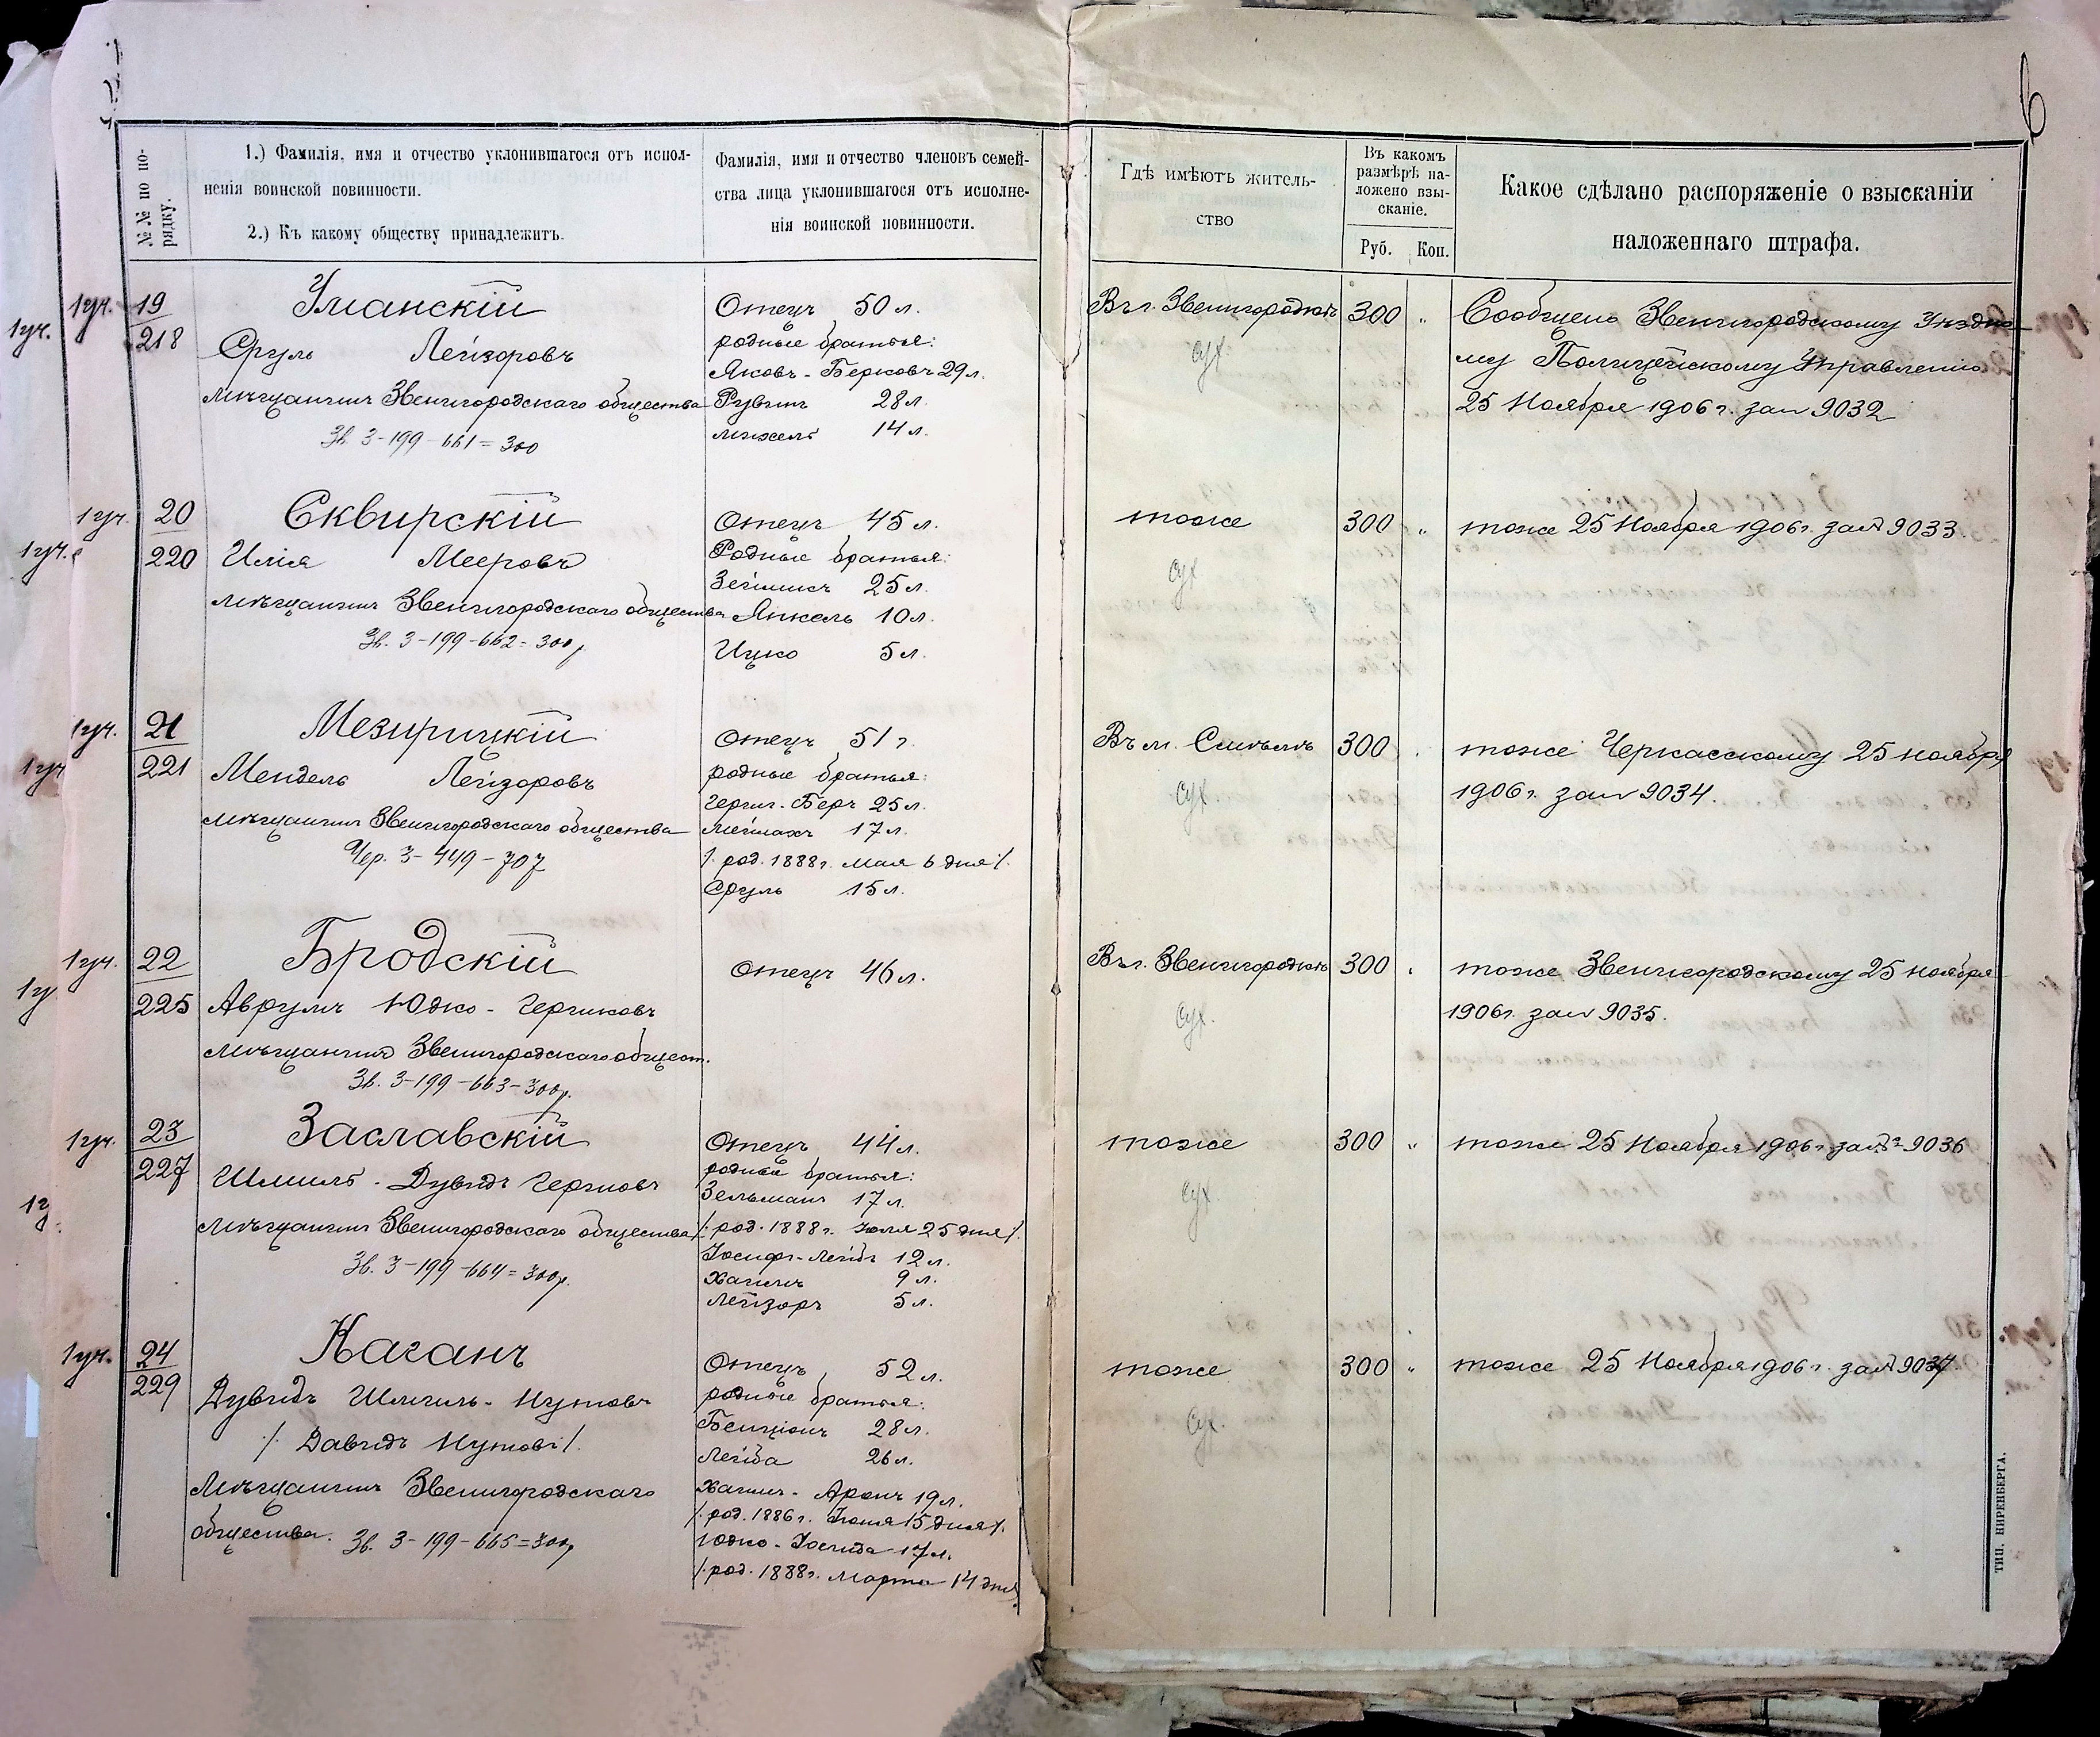 6
№№ по по-
рядку.
1.) Фамилія, имя и отчество уклонившагося отъ испол-
ненія воинской повинности.
2.) Къ какому обществу принадлежитъ.
Фамилія, имя и отчество членовъ семей-
ства лица уклонившагося отъ исполне-
нія воинской повинности.
Гдѣ имѣютъ житель-
ство
Въ какомъ
размѣрѣ на-
ложено взы-
сканіе.
Руб. Коп.
Какое сдѣлано распоряженіе о взысканіи
наложеннаго штрафа.
1уч. 1уч. 19
218
Уманскій
Сруль Лейзоровъ
мѣщанинъ Звенигородскаго общества
Зв. 3-199-661=300
Отецъ 50 л.
родные братья:
Яковъ-Берковъ 29 л.
Рувинъ 28 л.
14 л.
Въ г. Звенигородкѣ
сух
300 "
Сообщено Звенигородскому Уѣздно-
му Полицейскому Управленію
25 Ноября 1906 г. за № 9032
1уч. 1уч. 20
220
Сквирскій
Илія Мееровъ
мѣщанинъ Звенигородскаго общества
Зв. 3-199-662=300р
Отецъ 45 л.
Родные братья:
25 л.
Янкель 10 л.
Ицко 5 л.
тоже
сух
300 "
тоже 25 Ноября 1906 г. за № 9033.
1уч. 1уч 21
221
Мезирицкій
Мендель Лейзоровъ
мѣщанинъ Звенигородскаго общества
Чер. 3-449-707
Отецъ 51 г.
родные братья:
Герш-Беръ 25 л.
17 л.
/. род. 1888 г. Мая 6 дня ./
Сруль 15 л.
Въ м. Смѣлѣ
сух.
300 "
тоже Черкасскому 25 ноября
1906 г. за № 9034.
1уч. 1у 22
225
Бродскій
Аврумъ Юдко-Гершковъ
мѣщанинъ Звенигородскаго общест.
Зв. 3-199-663-300р.
Отецъ 46 л.
Въ г. Звенигородкѣ
сух.
300 "
тоже Звенигородскому 25 ноября
1906 г. за № 9035.
1уч. 1у 23
227
Заславскій
Шмиль-Дувидъ Гершовъ
мѣщанинъ Звенигородскаго общества
Зв. 3-199-664=300р.
Отецъ 44 л.
родные братья:
Зельманъ 17 л.
/. род. 1888 г. Іюля 25 дня ./
Іосифъ-Лейбъ 12 л.
Хаимъ 9 л.
Лейзоръ 5 л.
тоже
сух.
300 "
тоже 25 Ноября 1906 г. за № 9036
1уч. 24
229
Каганъ
Дувидъ Шмиль-Нутовъ
/. Давидъ Нутовъ ./
Мѣщанинъ Звенигородскаго
общества. Зв. 3-199-665=300р
Отецъ 52 л.
родные братья:
Бенціонъ 28 л.
Лейба 26 л.
Хаимъ-Аронъ 19 л.
/. род. 1886 г. Іюня 15 дня ./
Юдко-Іосиба 17 л.
/. род. 1888 г. Марта 14 дня
тоже
сух.
300 "
тоже 25 Ноября 1906 г. за № 9037.
ТИП. НИРЕНБЕРГА.